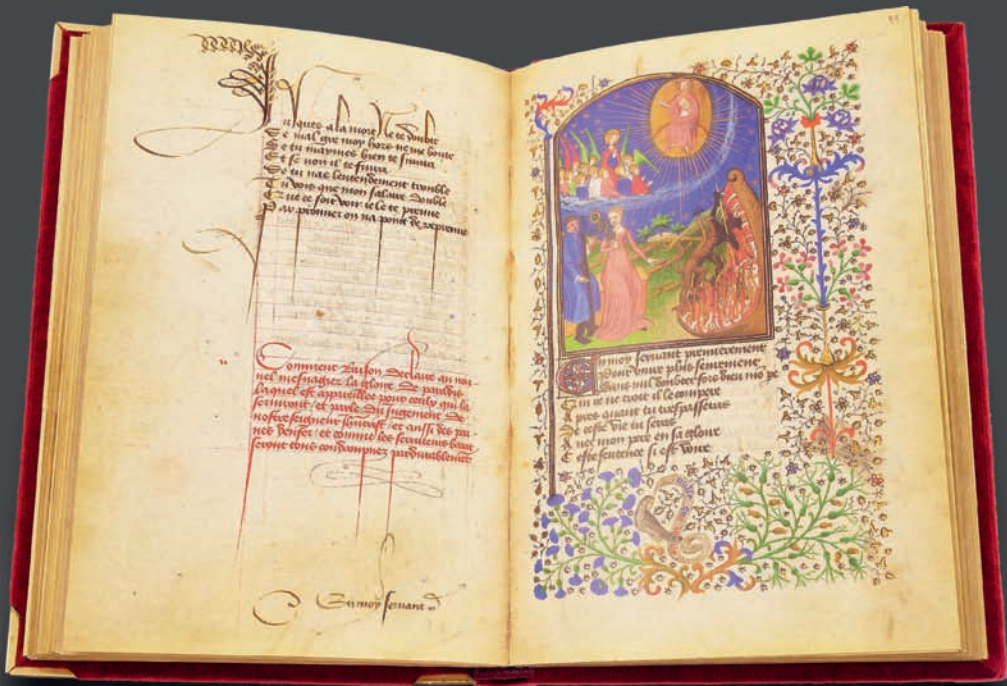 Jusques a la mort ie te doubte
Et mal gre moy hors ne me boute
Se tu maymes bien te suiura
Et se non il te fuira
Se tu nas lentendement trouble
Tu vois que mon salaire double
Et ne ce soit voir ie le te preuue
Par prouuer on na point de repreuue
Comment Raison declaire au nou
uel mesnagier la gloire de paradis
laquel est appareillee pour ceulx qui la
seruiront / et parle du jugement de
nostre seigneur / et aussi des pai
nes denfer / et comme les
seront tous condampnez pardurablement
En moy seruant
En moy seruant premierement
Pour venir plus
Auras mil
Qui ce ne croit il le compere
Apres quant tu trespasseras
De ceste vie tu seras
Auec mon pere en sa gloire
Ceste sentence si est voire